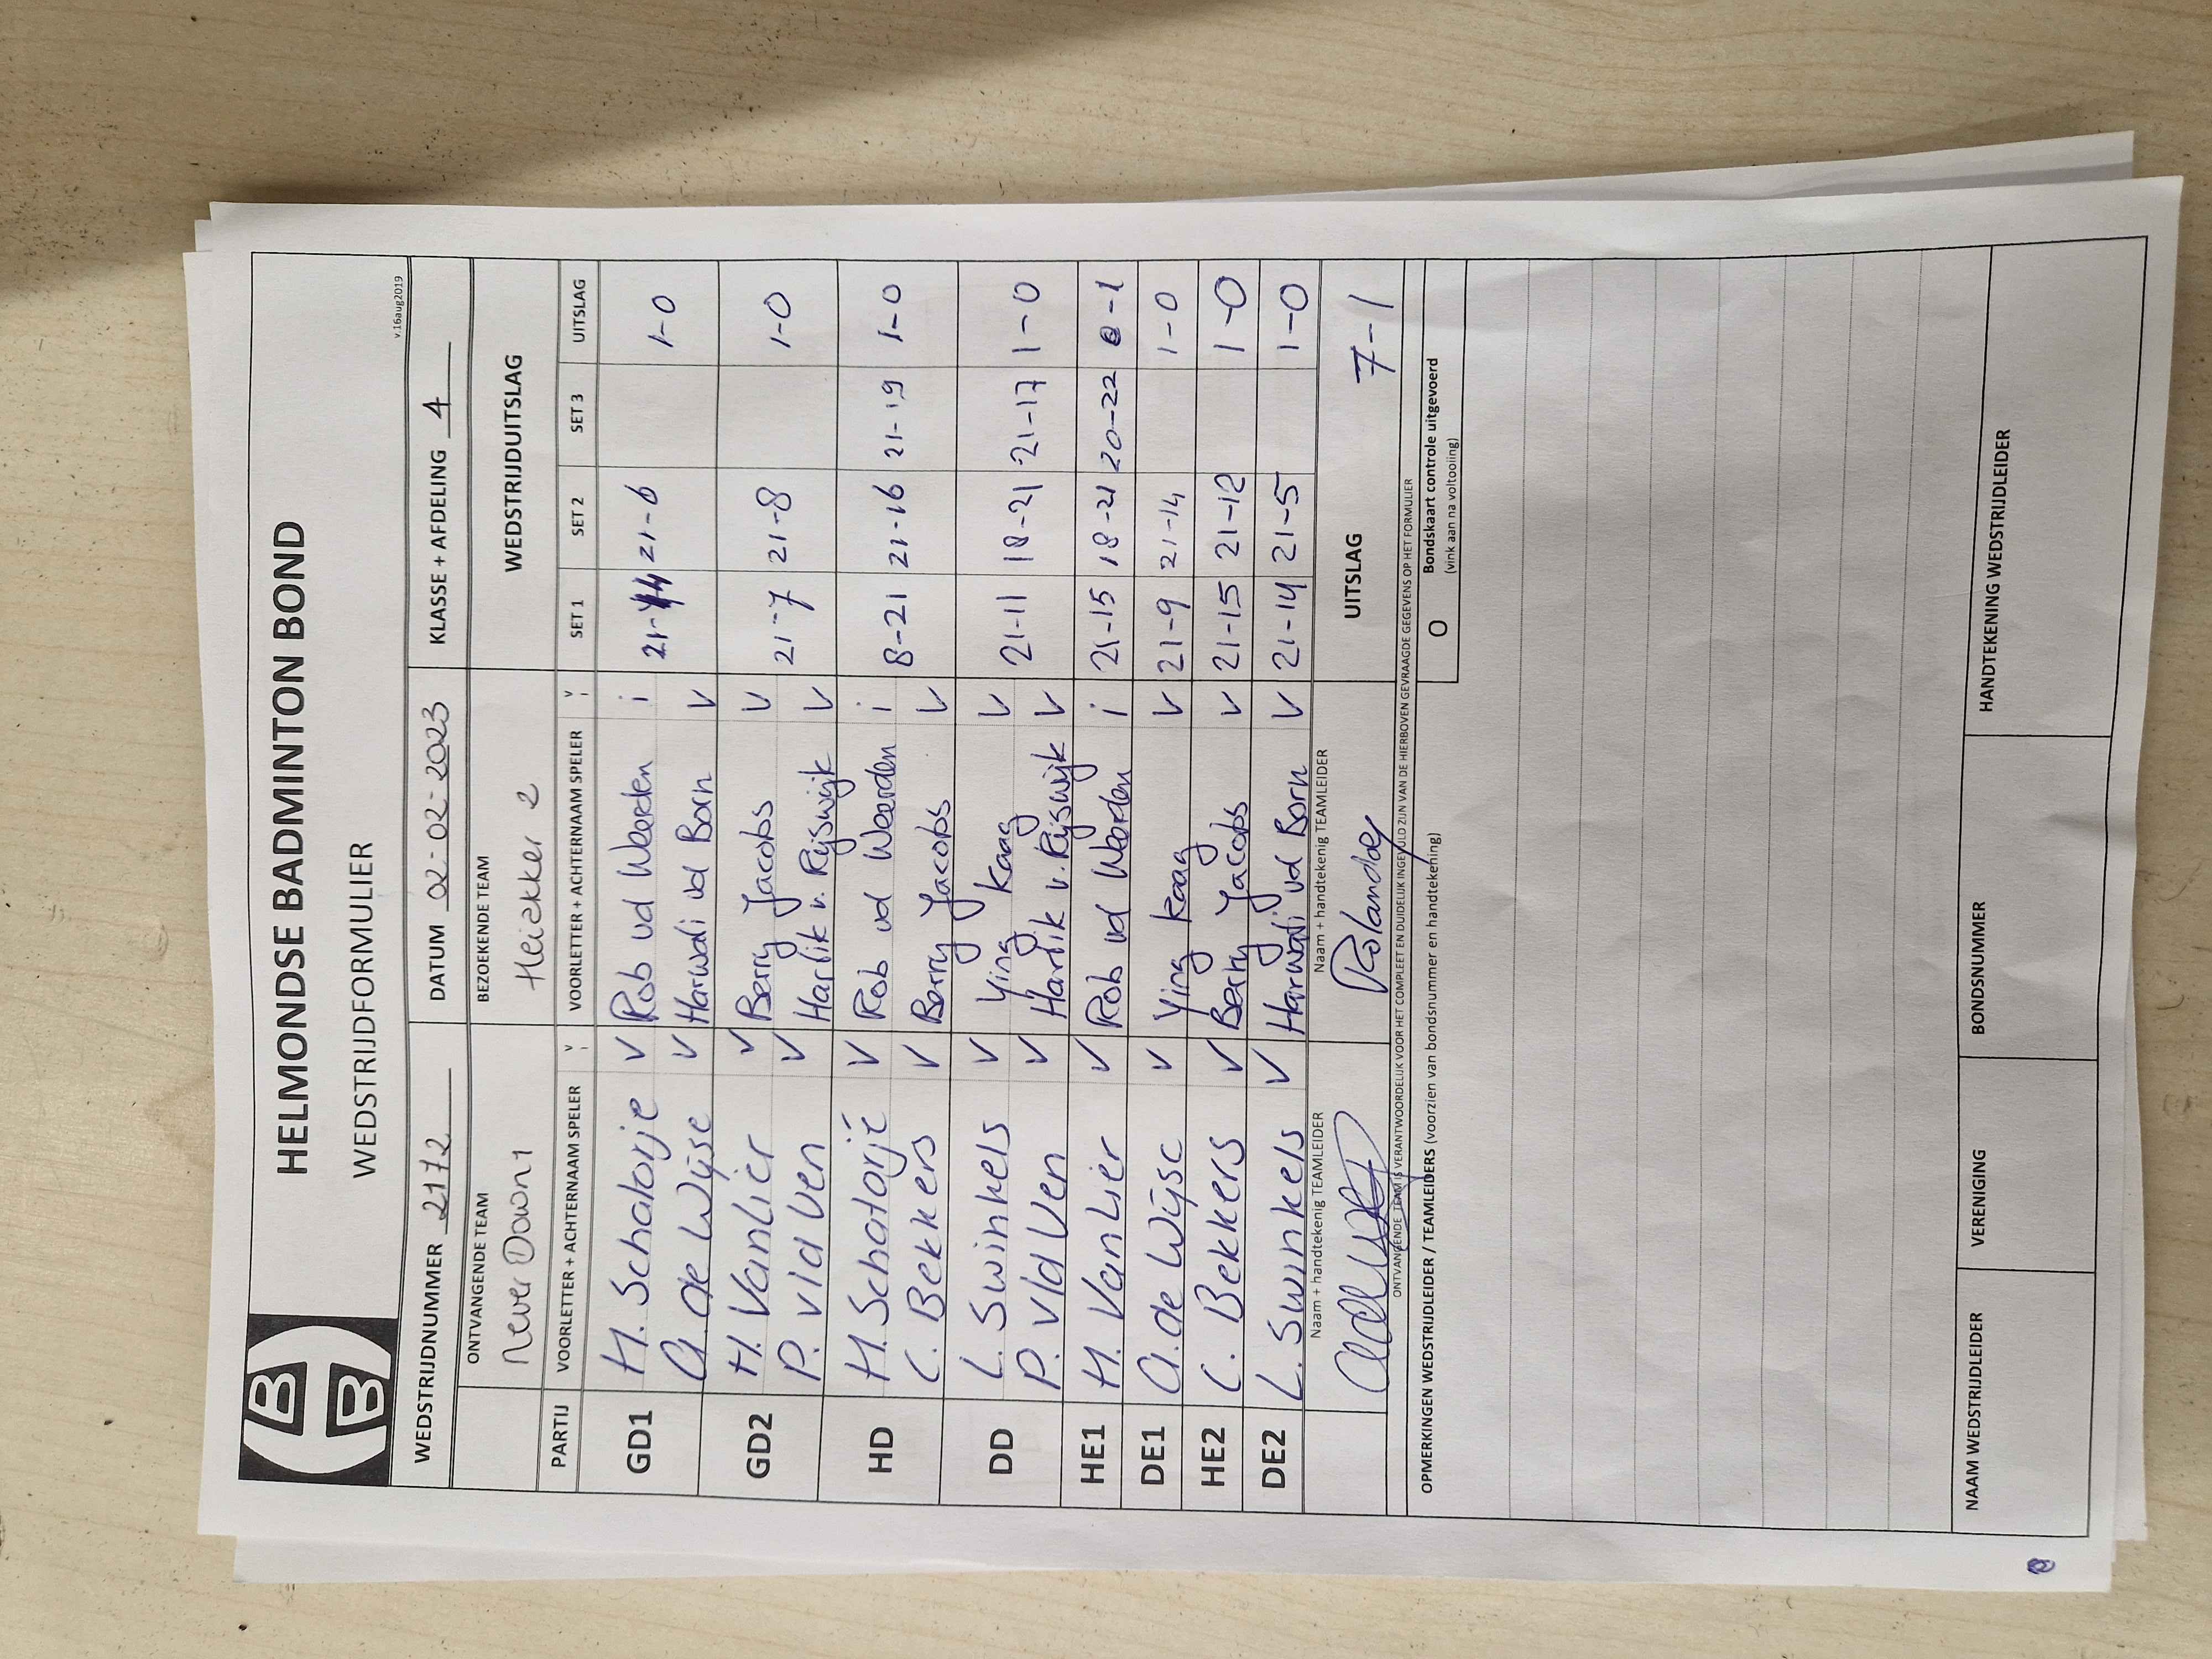 HBB
HELMONDSE BADMINTON BOND
WEDSTRIJDFORMULIER
v.16aug2019
WEDSTRIJDNUMMER 2172 DATUM 02-02-2023 KLASSE + AFDELING 4
ONTVANGENDE TEAM BEZOEKENDE TEAM WEDSTRIJDUITSLAG
Never Down 1 Heiakker 2
PARTIJ VOORLETTER + ACHTERNAAM SPELER V i VOORLETTER + ACHTERNAAM SPELER V i SET 1 SET 2 SET 3 UITSLAG
GD1 H. Schatorje V Rob vd Weerden i 21-14 21-6 1-0
A. de Wijse V Harwati vd Born V
GD2 H. Van Lier V Berry Jacobs V 21-7 21-8 1-0
P. v/d Ven V Hartik v. Rijswijk V
HD H. Schatorjé V Rob vd Weerden i 8-21 21-16 21-19 1-0
C. Bekkers V Berry Jacobs V
DD L. Swinkels V Ying Kaag V 21-11 18-21 21-17 1-0
P. v/d Ven V Hartik v. Rijswijk V
HE1 H. Van Lier V Rob vd Weerden i 21-15 18-21 20-22 0-1
DE1 A. de Wijse V Ying Kaag V 21-9 21-14 1-0
HE2 C. Bekkers V Berry Jacobs V 21-15 21-12 1-0
DE2 L. Swinkels V Harwati vd Born V 21-14 21-5 1-0
Naam + handtekenig TEAMLEIDER Naam + handtekenig TEAMLEIDER UITSLAG 7-1
ONTVANGENDE TEAM IS VERANTWOORDELIJK VOOR HET COMPLEET EN DUIDELIJK INGEVULD ZIJN VAN DE HIERBOVEN GEVRAAGDE GEGEVENS OP HET FORMULIER
OPMERKINGEN WEDSTRIJDLEIDER / TEAMLEIDERS (voorzien van bondsnummer en handtekening)
O Bondskaart controle uitgevoerd
(vink aan na voltooiing)
NAAM WEDSTRIJDLEIDER VERENIGING BONDSNUMMER HANDTEKENING WEDSTRIJDLEIDER